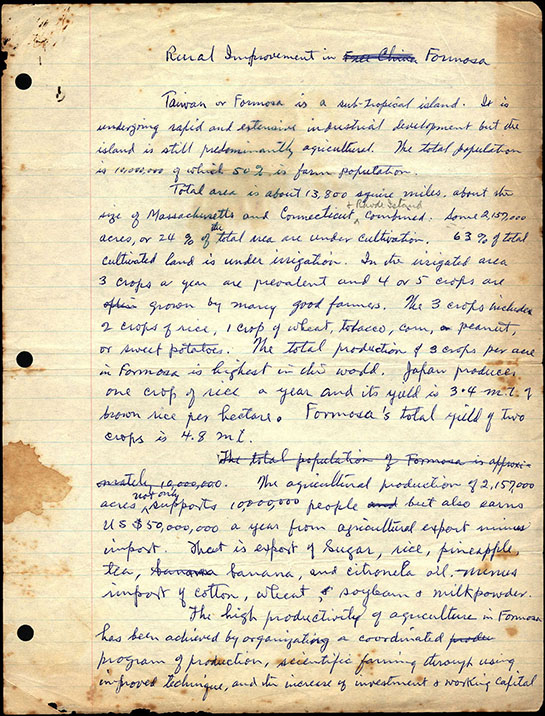 Rural Improvement in Free China Formosa
Taiwan or Formosa is a sub-tropical island. It is
undergoing rapid and extensive industrial development but the
island is still predominantly agricultural. The total population
is 10,000,000 of which 50% is farm population.
Total area is about 13,800 squire miles, about the
+ Rhode Island
size of Massachusetts and Connecticut combined. Some 2,157,000
acres, or 24% of the total area are under cultivation. 63% of total
cultivated land is under irrigation. In the irrigated area
3 crops a year are prevalent and 4 or 5 crops are
often grown by many good farmers. The 3 crops include
2 crops of rice, 1 crop of wheat, tobacco, corn, or peanut,
or sweet potatoes. The total production of 3 crops per acre
in Formosa is highest in this world. Japan produces
one crop of rice a year and its yield is 3.4 m.t. of
brown rice per hectare. Formosa's total yield of two
crops is 4.8 m.t.
The total population of Formosa is approxi-
mately 10,000,000. The agricultural production of 2,157,000
acres not only supports 10,000,000 people and but also earns
US $50,000,000 a year from agricultural export minus
import. That is export of sugar, rice, pineapple,
tea, banana banana, and citronela oil, minus
import of cotton, wheat, & soybean & milkpowder.
The high productivity of agriculture in Formosa
has been achieved by organizating a coordinated
program of production, scientific farming through using
improved technique, and the increase of investment & working capital